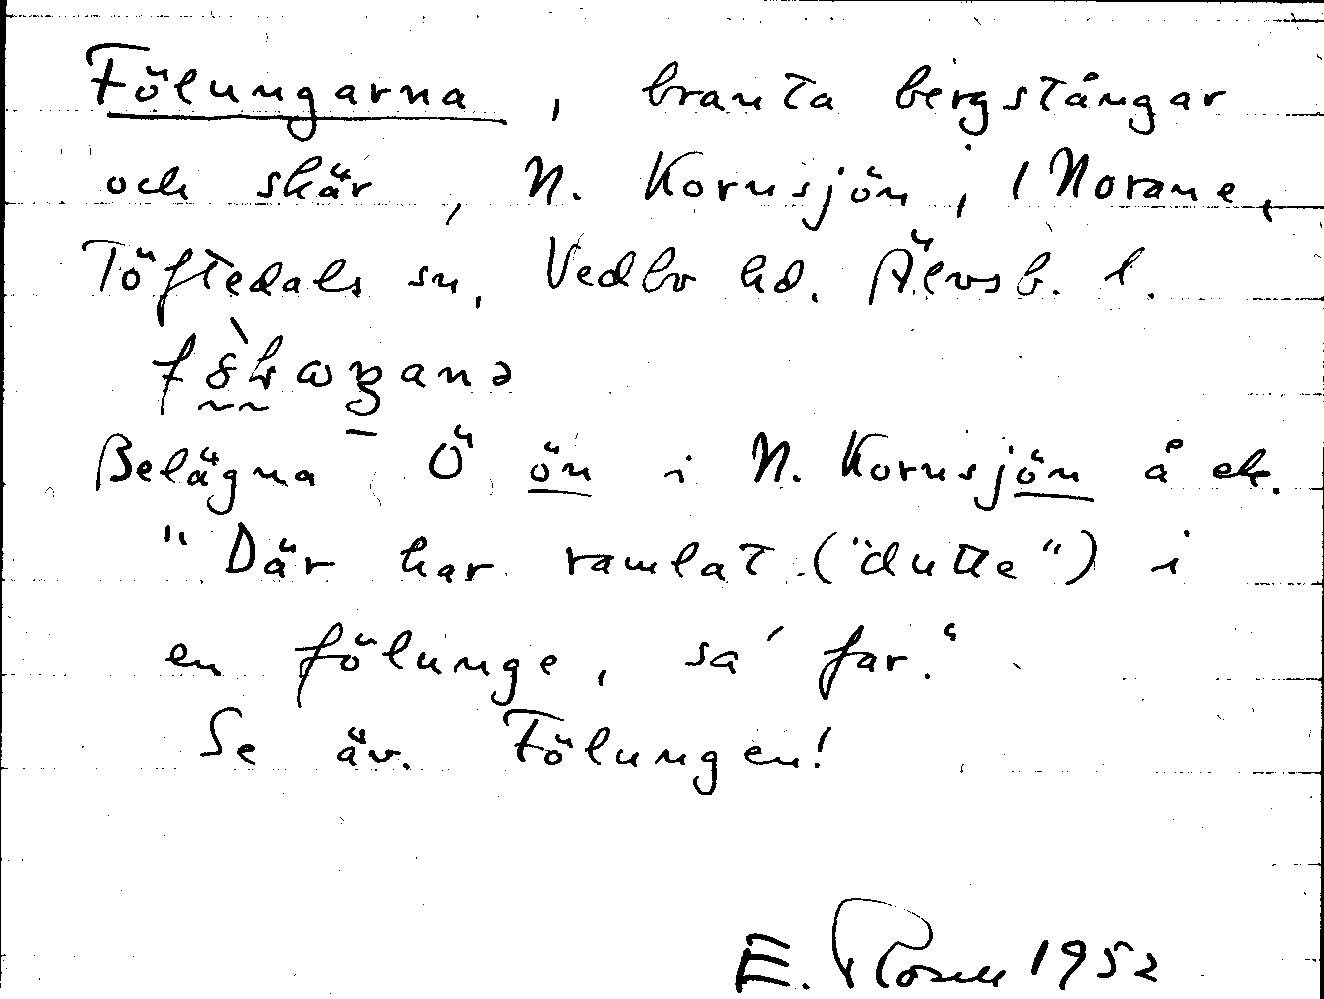 Fölungarna, branta bergstångar
och skär, N. Kornsjön, 1 Norane,
Töftedals sn, Vedbo hd. Älvsb. l.
Belägna Ö ön i N. Kornsjön å ek.
"Där har ramlat ("dutte") i
en fölunge, sa' far."
Se äv. Fölungen!
E. Rosell 1952